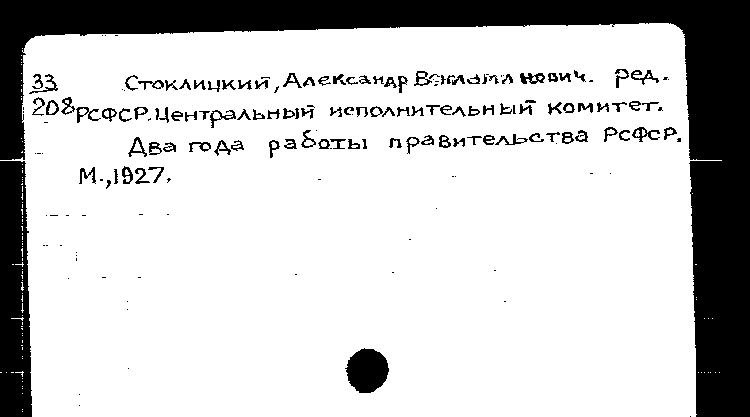 33 Стоклицкий, Александр Вениаминович. ред.
208 РСФСР. Центральный исполнительный комитет.
Два года работы правительства РСФСР.
М., 1927.